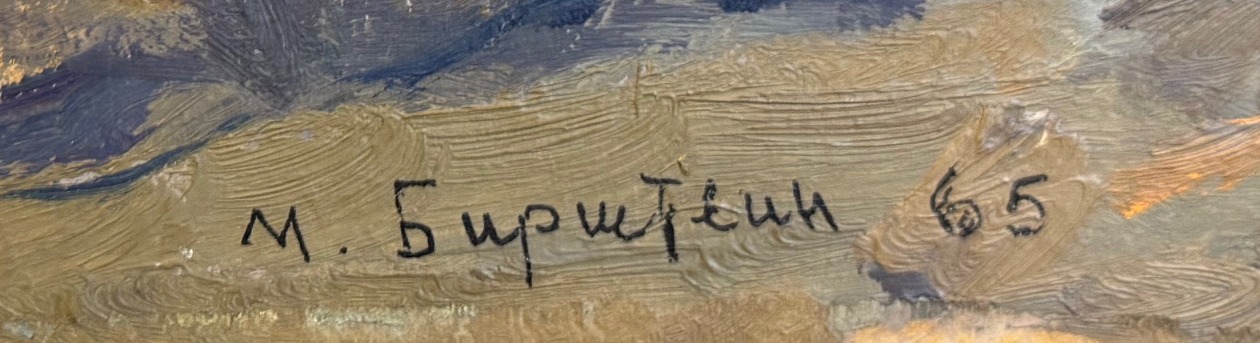 М. Бирштеин 65